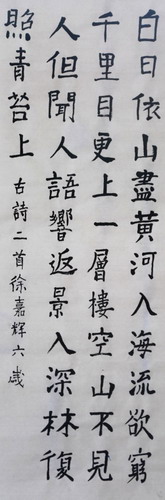 白日依山盡黃河入海流欲窮
千里目更上一層樓空山不見
人但聞人語響返景入深林復
照青苔上
古詩二首徐嘉輝六歲